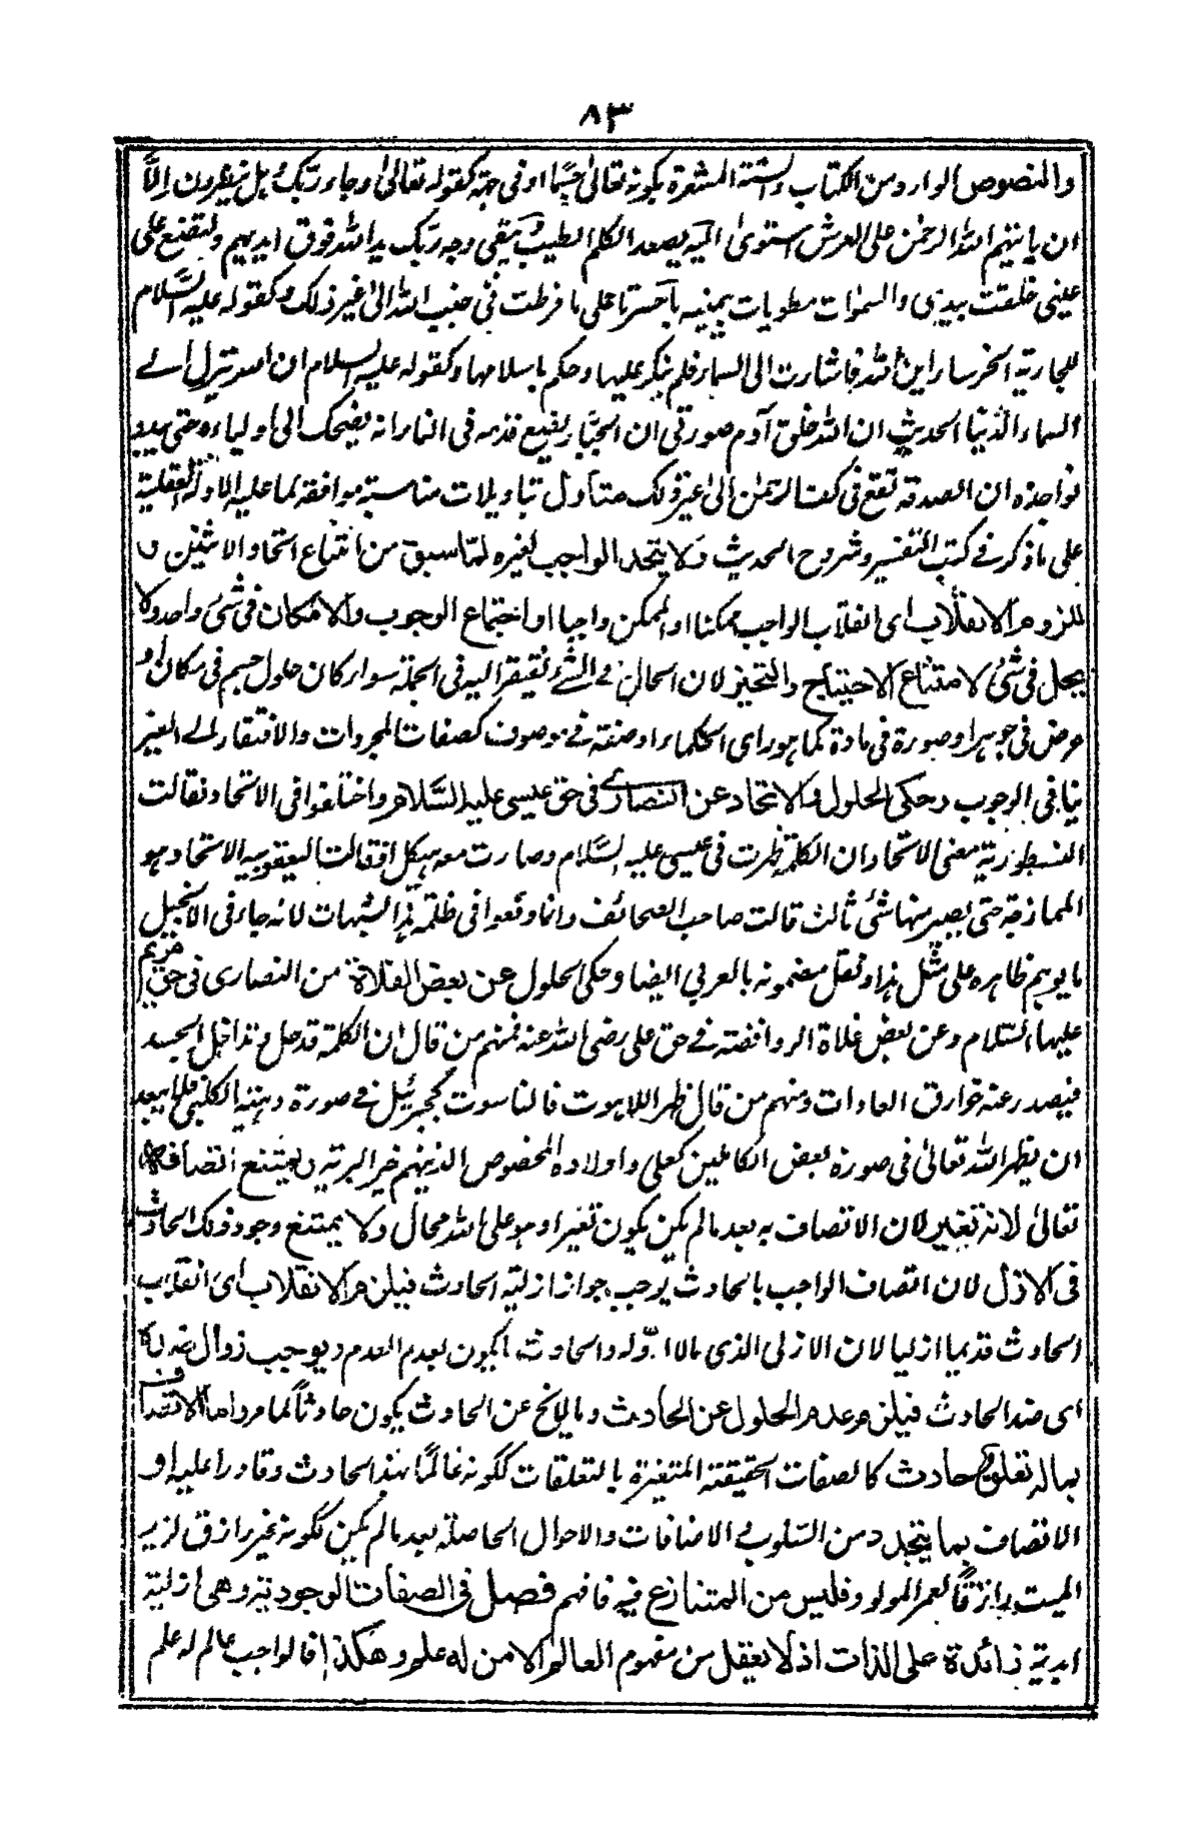 ٨٣
والنصوص الواردة من الكتاب والسنة المشعرة بكونه تعالى جسما او فى جهة كقوله تعالى وجاء ربك هل ينظرون الا
ان ياتيهم الله الرحمن على العرش استوى اليه يصعد الكلم الطيب ويبقى وجه ربك يد الله فوق ايديهم ولتصنع على
عينى خلقت بيدى والسموات مطويات بيمينه ياحسرتا على ما فرطت فى جنب الله الى غير ذلك وكقوله عليه السلام
للجارية الخرساء اين الله فاشارت الى السماء فلم ينكر عليها وحكم باسلامها وكقوله عليه السلام ان الله ينزل الے
السماء الدنيا الحديث ان الله خلق آدم صورتى ان الجبار يضع قدمه فى النار انه يضحك الى اولياءه حتى يبدو
نواجذه ان الصدقة تقع فى كف الرحمن الى غير ذلك متأول بتاويلات مناسبة موافقة لما عليه الادلة العقلية
على ما ذكر فے كتب التفسير وشروح الحديث ولا يتحد الواجب لغيره لما سبق من امتناع اتحاد الاثنين و
للزوم الانقلاب اى انقلاب الواجب ممكنا او الممكن واجبا او اجتماع الوجوب والامكان فى شئ واحد ولا
يحل فى شئ لامتناع الاحتياج والتحيز لان الحال فے الشئ يفتقر اليه فى الجملة سواء كان حلول جسم فى مكان او
عرض فى جوهر او صورة فى مادة كما هو راى الحكماء او صفة فے موصوف كصفات المجردات والافتقار الے الغير
ينافى الوجوب وحكى الحلول والاتحاد عن النصارے فى حق عيسى عليه السلام واختلفوا فى الاتحاد فقالت
النسطورية معنى الاتحاد ان الكلمة ظهرت فى عيسى عليه السلام وصارت معه هيكلا فقالت اليعقوبية الاتحاد هو
الممازجة حتى يصير منها شئ ثالث قالت صاحب الصحائف وانما وقعوا فى ظلمة هذا الشبهات لانه جاء فى الانجيل
ما يوهم ظاهره على مثل هذا ونقل مضمونه بالعربى ايضا وحكى الحلول عن بعض الغلاة من النصارى فى حق مريم
عليها السلام وعن بعض غلاة الروافضة فے حق على رضى الله عنه فمنهم من قال ان الكلمة قد حل وتداخل الجسد
فيصدر عنه خوارق العادات ومنهم من قال ظهر اللاهوت فالناسوت كجبرئيل فے صورة دحية الكلبى فلا يبعد
ان يظهر الله تعالى فى صورة بعض الكاملين كعلى واولاده المخصوص الذينهم خير البرية ويمتنع اتصافه
تعالى لانه تغير لان الاتصاف به بعد ما لم يكن يكون تغيرا وهو على الله محال ولا يمتنع وجود ذلك الحادث
فى الازل لان اتصاف الواجب بالحادث يوجب جواز ازلية الحادث فيلزم الانقلاب اى انقلاب
الحادث قديما ازليا لان الازلى الذى مالا اول له والحادث ما يكون بعدم العدم ويوجب زوال ضده
اى ضد الحادث فيلزم عدم الحلول عن الحادث وما لا يخ عن الحادث يكون حادثا كما مر واما الاتصاف
بماله تعلق حادث كالصفات الحقيقة المتغيرة بالتعلقات ككونه عالما بهذا الحادث وقادرا عليه او
الاتصاف بما يتجدد من السلوب والاضافات والاحوال الحاصلة بعد ما لم يكن ككونه غير رازق لزيد
الميت ورازقا لعمر المولود فليس من المتنازع فيه فافهم فصل فى الصفات الوجودية وهى ازلية
ابدية زائدة على الذات اذ لا يعقل من مفهوم العالم الا من له علم وهكذا فالواجب عالم له علم